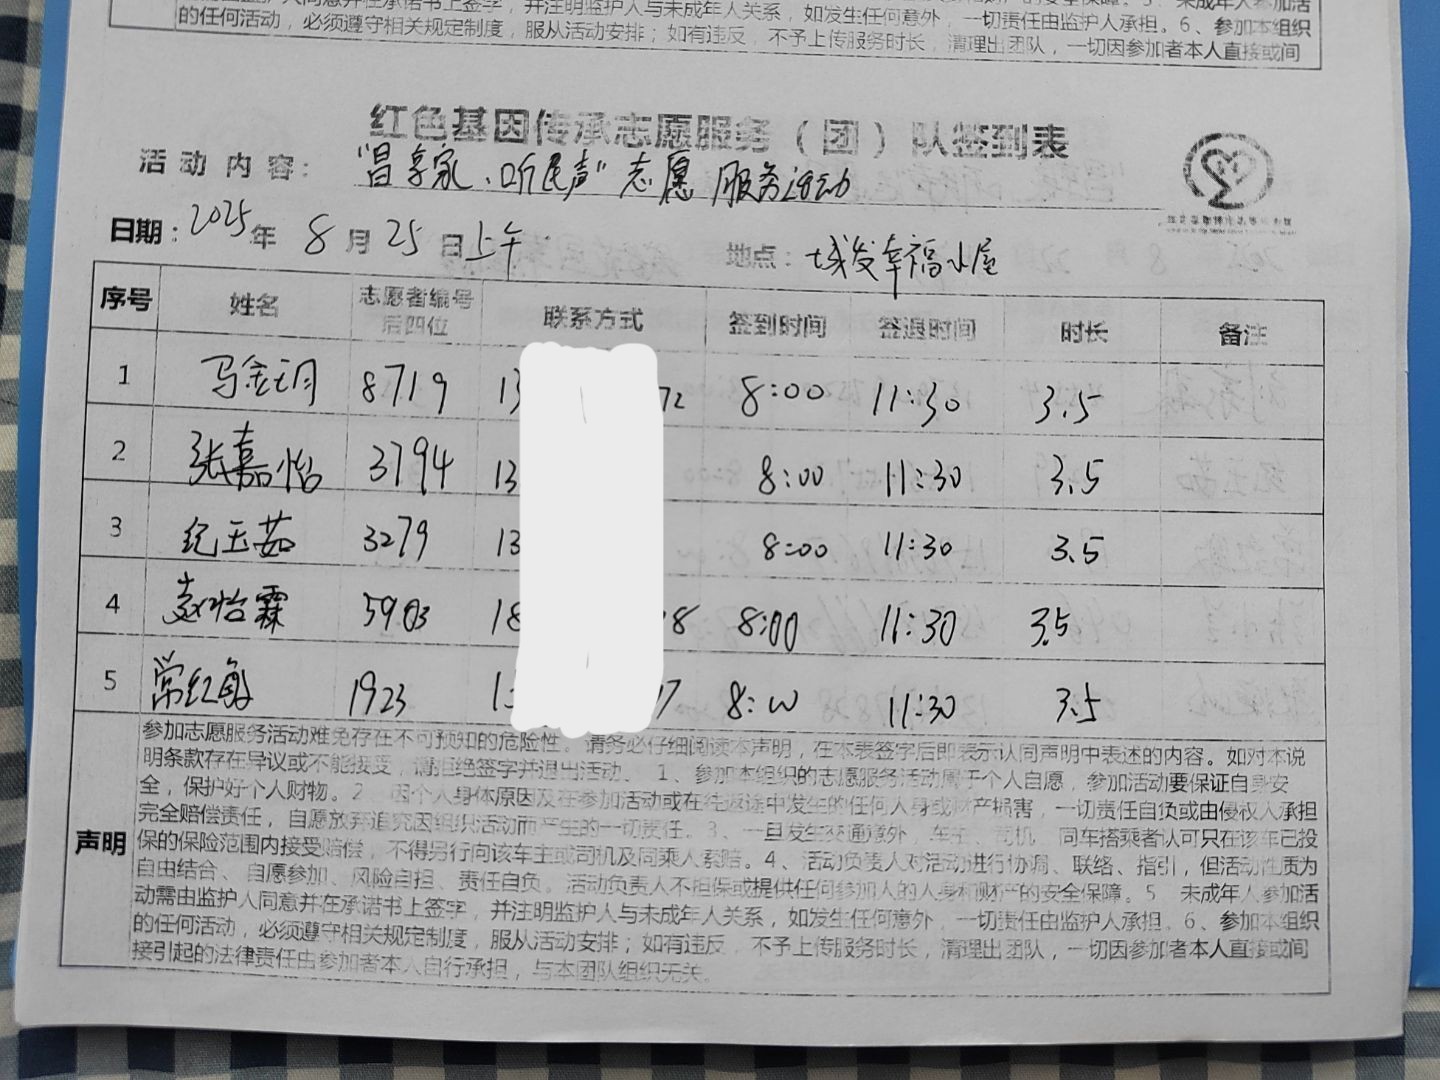 的任何活动，必须遵守相关规定制度，服从活动安排；如有违反，不予上传服务时长，清理出团队，一切因参加者本人直接或间
红色基因传承志愿服务（团）队签到表
活动内容：“昌享家、听民声”志愿服务活动
日期：2025年8月25日上午 地点：城发幸福小屋
序号 姓名 志愿者编号后四位 联系方式 签到时间 签退时间 时长 备注
1 马金玥 8719 13 72 8:00 11:30 3.5
2 张嘉怡 3794 13 8:00 11:30 3.5
3 纪玉茹 3279 13 8:00 11:30 3.5
4 赵怡霖 5903 18 8 8:00 11:30 3.5
5 常红敏 1923 1 17 8:00 11:30 3.5
声明
参加志愿服务活动难免存在不可预知的危险性。请务必仔细阅读本声明，在本表签字后即表示认同声明中表述的内容。如对本说
明条款存在异议或不能接受，请拒绝签字并退出活动。 1、参加本组织的志愿服务活动属于个人自愿，参加活动要保证自身安
全，保护好个人财物。2、因个人身体原因及在参加活动或在往返途中发生的任何人身或财产损害，一切责任自负或由侵权人承担
完全赔偿责任，自愿放弃追究因组织活动而产生的一切责任。3、一旦发生交通意外，车主、司机、同车搭乘者认可只在该车已投
保的保险范围内接受赔偿，不得另行向该车主或司机及同乘人索赔。4、活动负责人对活动进行协调、联络、指引，但活动性质为
自由结合、自愿参加、风险自担、责任自负。活动负责人不担保或提供任何参加人的人身和财产的安全保障。5 未成年人参加活
动需由监护人同意并在承诺书上签字，并注明监护人与未成年人关系，如发生任何意外，一切责任由监护人承担。6、参加本组织
的任何活动，必须遵守相关规定制度，服从活动安排；如有违反，不予上传服务时长，清理出团队，一切因参加者本人直接或间
接引起的法律责任由参加者本人自行承担，与本团队组织无关。